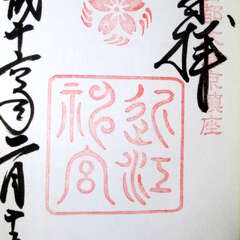 京鎮座
拝
近江
神宮
成十六年二月十